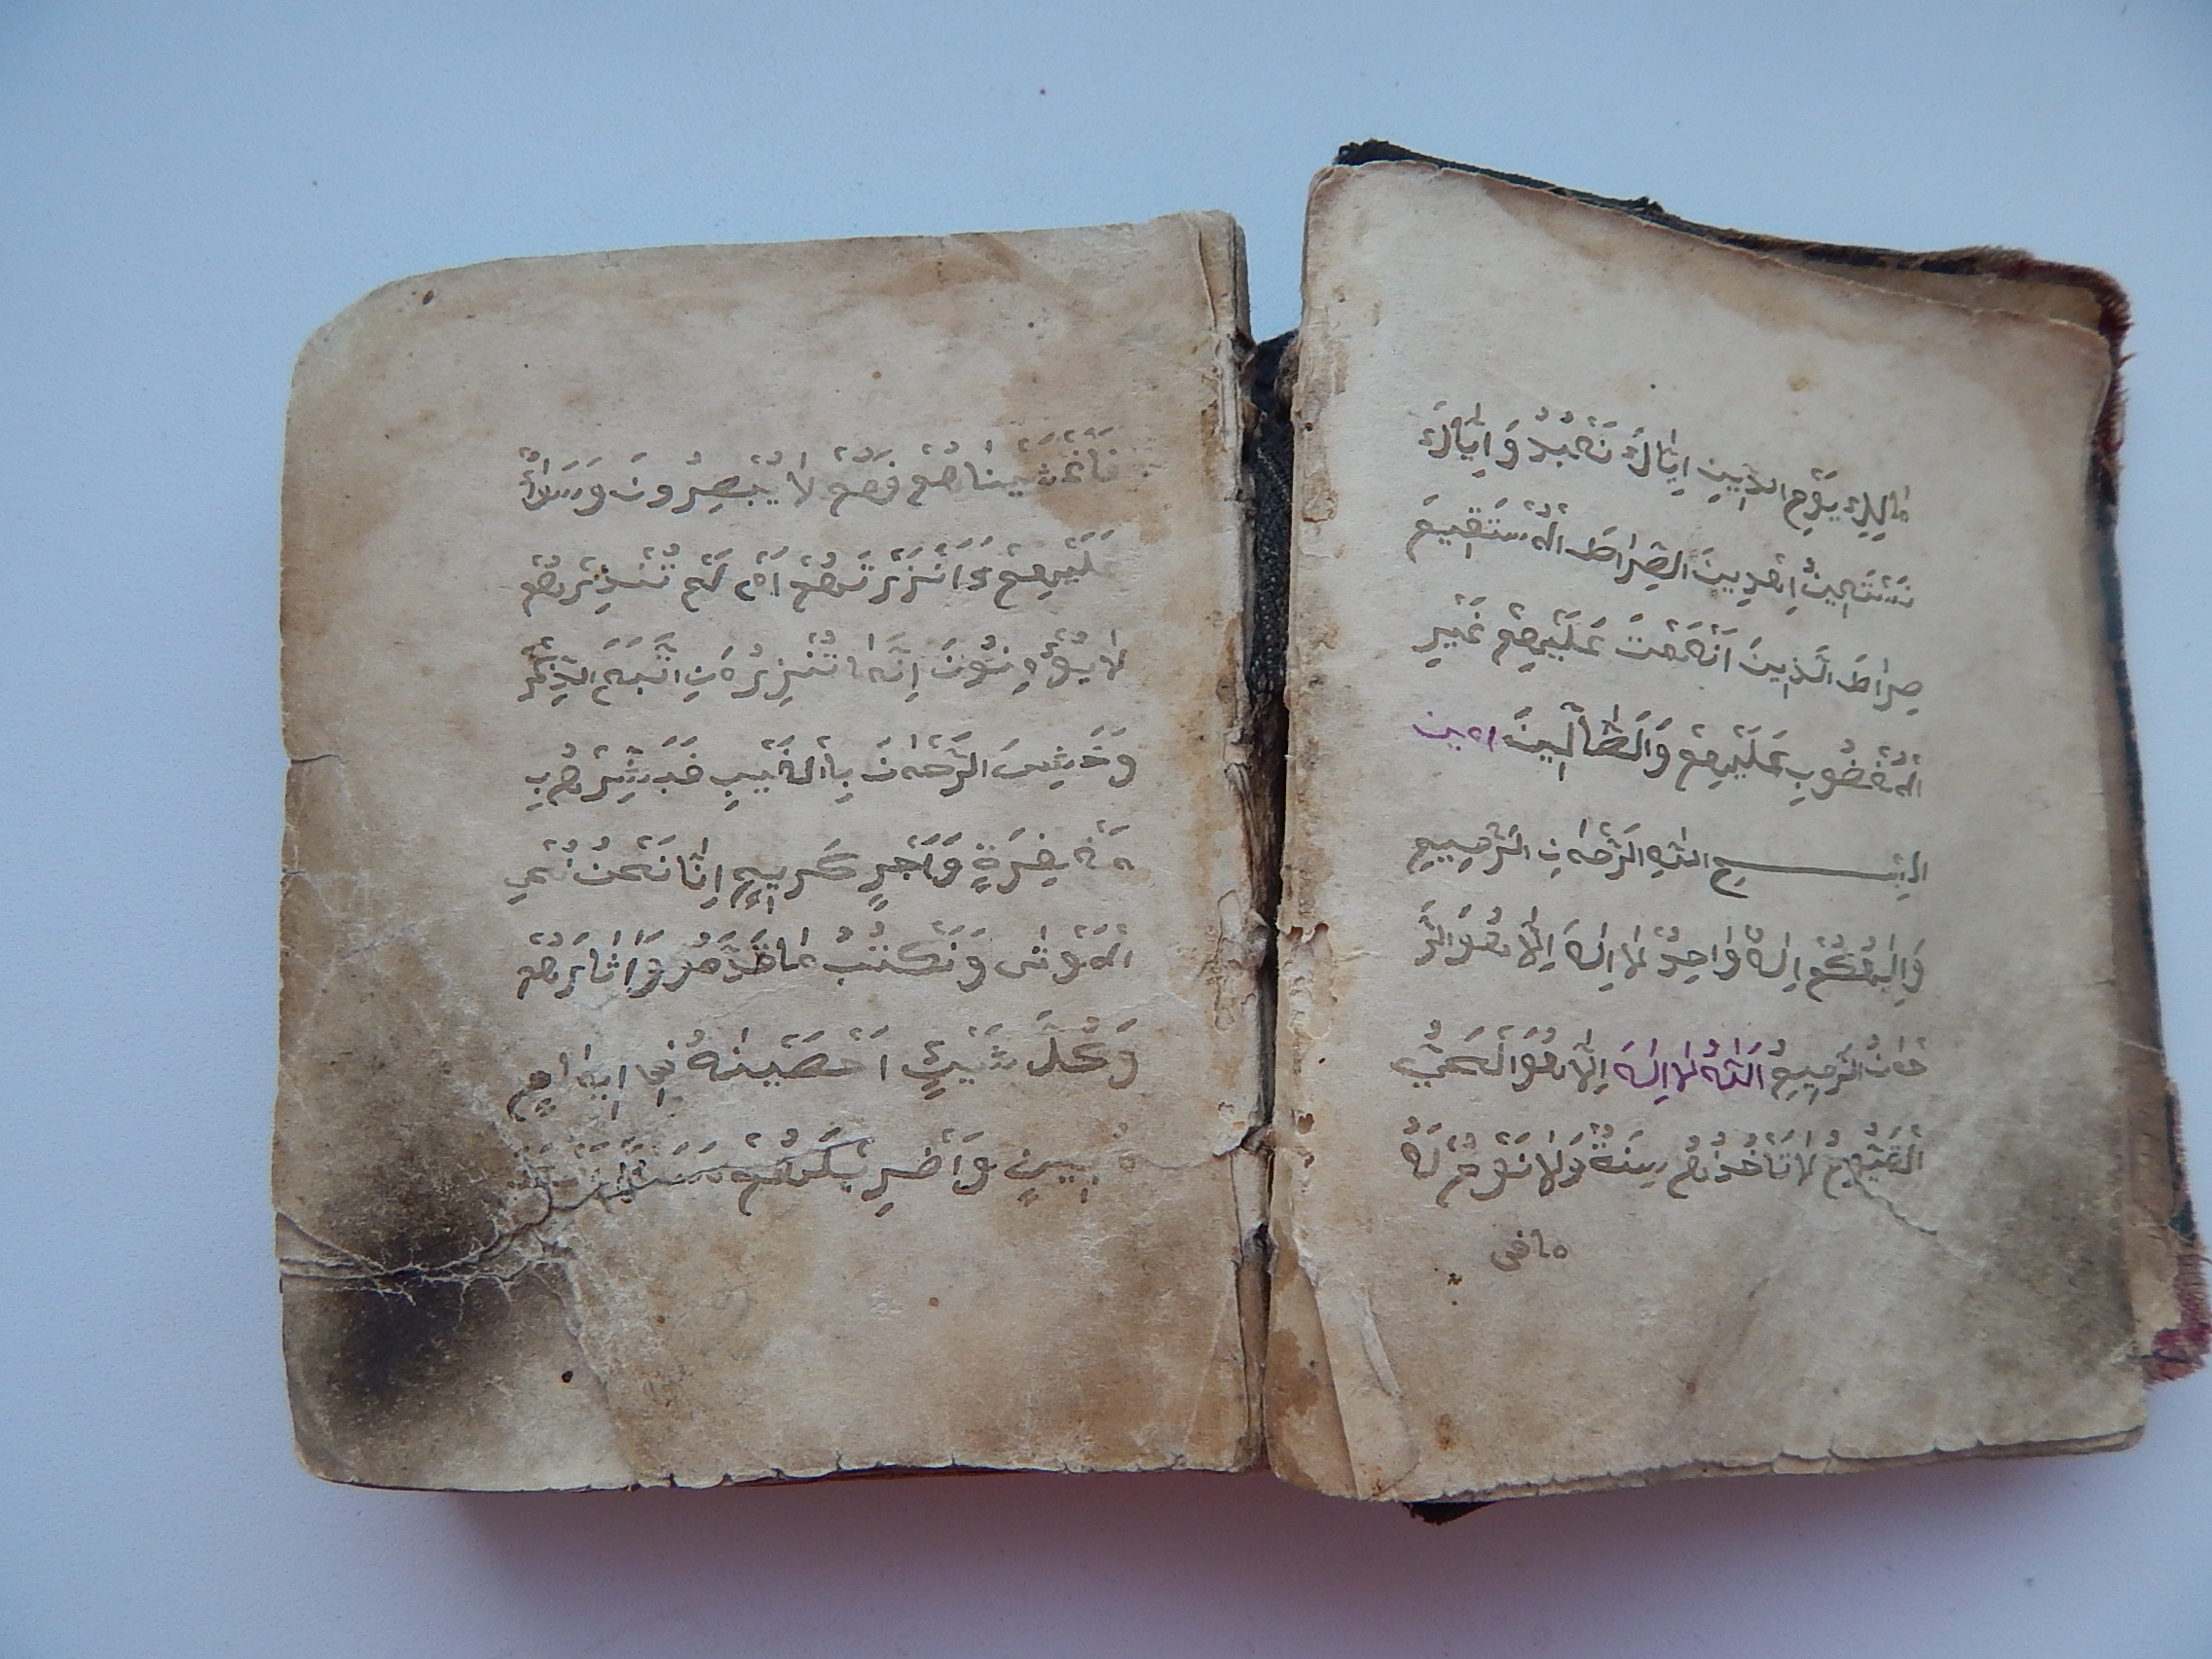 مَالِكِ يَوْمِ الدِّينِ اِيَّاكَ نَعْبُدُ وَاِيَّاكَ
نَسْتَعِينُ اِهْدِينَ الصِّرَاطَ الْمُسْتَقِيمَ
صِرَاطَ الَّذِينَ اَنْعَمْتَ عَلَيْهِمْ غَيْرِ
الْمَغْضُوبِ عَلَيْهِمْ وَالضَّالِّينَ امين
البِسْمِ اللّٰهِ الرَّحْمٰنِ الرَّحِيمِ
وَاِلٰهُكُمْ اِلٰهٌ وَاحِدٌ لَا اِلٰهَ اِلَّا هُوَ الرَّ
حْمٰنُ الرَّحِيمُ اَللّٰهُ لَا اِلٰهَ اِلَّا هُوَ الْحَيُّ
الْقَيُّومُ لَا تَاْخُذُهُ سِنَةٌ وَلَا نَوْمٌ لَهُ
مافى
فَاَغْشَيْنَاهُمْ فَهُمْ لَا يُبْصِرُونَ وَسَوَاءٌ
عَلَيْهِمْ ءَاَنْذَرْتَهُمْ اَمْ لَمْ تُنْذِرْهُمْ
لَا يُؤْمِنُونَ اِنَّمَا تُنْذِرُ مَنِ اتَّبَعَ الذِّكْرَ
وَخَشِىَ الرَّحْمٰنَ بِالْغَيْبِ فَبَشِّرْهُ بِ
مَغْفِرَةٍ وَاَجْرٍ كَرِيمٍ اِنَّا نَحْنُ نُحْىِ
الْمَوْتٰى وَنَكْتُبُ مَا قَدَّمُو وَاٰثَارَهُمْ
وَكُلَّ شَيْئٍ اَحْصَيْنَاهُ فِى اِمَامٍ
مُبِينٍ وَاضْرِبْ لَهُمْ مَثَلًا